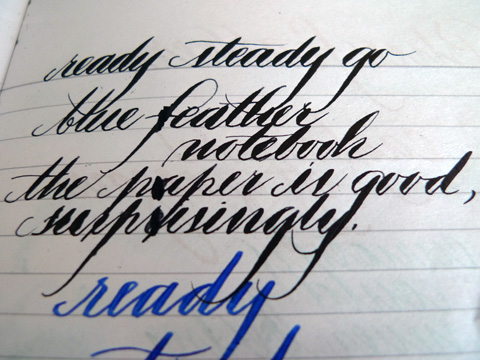 ready steady go
blue feather
notebook
the paper is good,
surprisingly.
ready